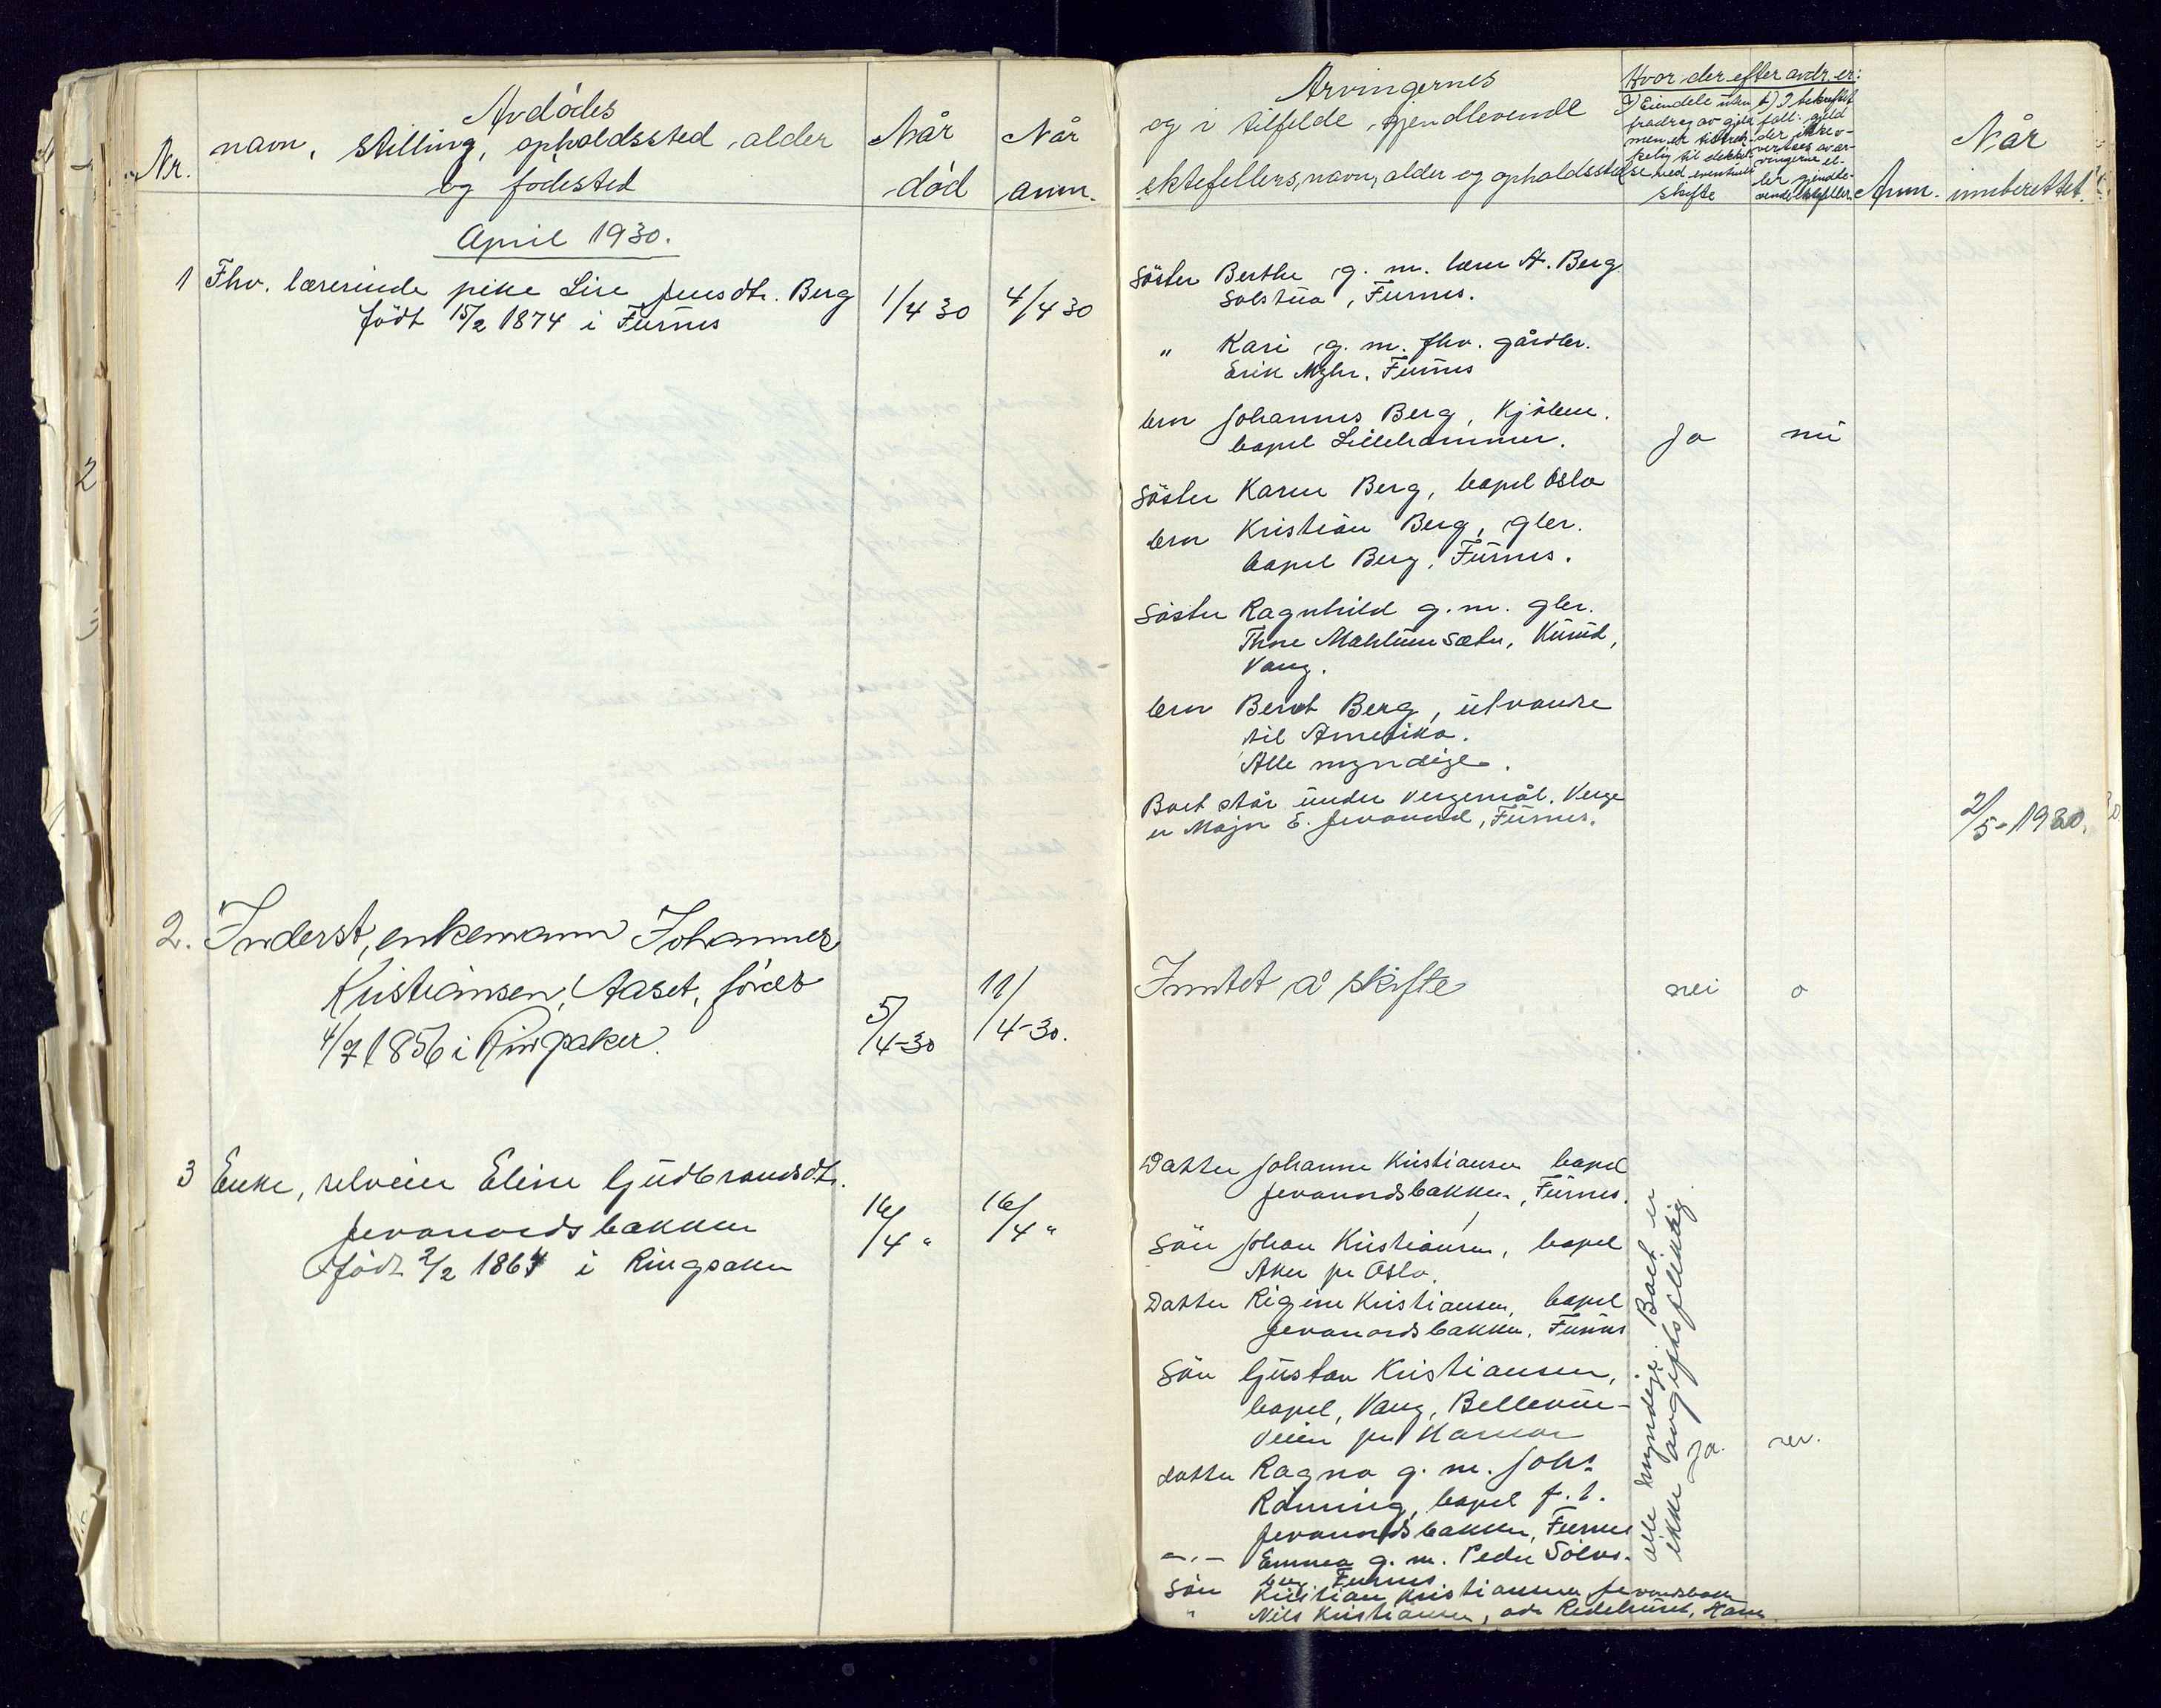 Avdødes
Nr. navn, stilling, opholdssted, alder
og fødested
Når
død
Når
anm.
April 1930.
1 Fhv. lærerinde pike Lise Jensdtr. Berg
født 15/2 1874 i Furnes
1/4 30
4/4 30
2. Inderst, enkemann Johannes
Kristiansen Aaset, født
4/7 1856 i Ringsaker.
5/4-30
11/4-30.
3 Enke, selveier Eline Gudbrandsdtr.
Jevanordsbakken
født 2/2 1864 i Ringsaker
16/4 "
16/4 "
Arvingernes
og i tilfelde gjenlevende
ektefellers, navn, alder og opholdssted
Hvor der efter avdr. er:
a) Eiendele uten
fradrag av gjeld
men er tilstræk-
kelig til dekkel-
se ved eventuell
skifte
b) I bekreftet
fall: gjeld
der ikke o-
vertaes av ar-
vingerne el-
ler gjenle-
vende ektefeller
Anm.
Når
innberettet.
Søster Berthe g. m. lærer A. Berg
Solstua, Furnes.
" Kari g. m. fhv. gårdbr.
Erik Myhr, Furnes
bror Johannes Berg, Kjøbm.
bopel Lillehammer.
ja nei
Søster Karen Berg, bopel Oslo
bror Kristian Berg, gbr.
bopel Berg, Furnes.
Søster Ragnhild g. m. gbr.
Thore Mahlumsæter,
Vang.
bror Bernt Berg, utvandret
til Amerika.
Alle myndige.
Boet står under vergemål. Verge
er Major E. Jevanord, Furnes.
2/5-1930.
Inntet å skifte
nei o
Datter Johanne Kristiansen bopel
Jevanordsbakken, Furnes.
Søn Johan Kristiansen, bopel
Aker pr Oslo.
Datter Rigine Kristiansen, bopel
Jevanordsbakken, Furnes
Søn Gustav Kristiansen,
bopel, Vang, Bellevue-
veien pr Hamar
datter Ragna g. m. Johs
Rønning, bopel p. t.
Jevanordsbakken, Furnes
-"- Emma g. m. Peder Solvs-
berg Furnes
Søn Kristian Kristiansen Jevanordsbakk
" Nils Kristiansen, adr Ham.
alle myndige. Boet er
ikke avgiftspliktig
ja. nei.